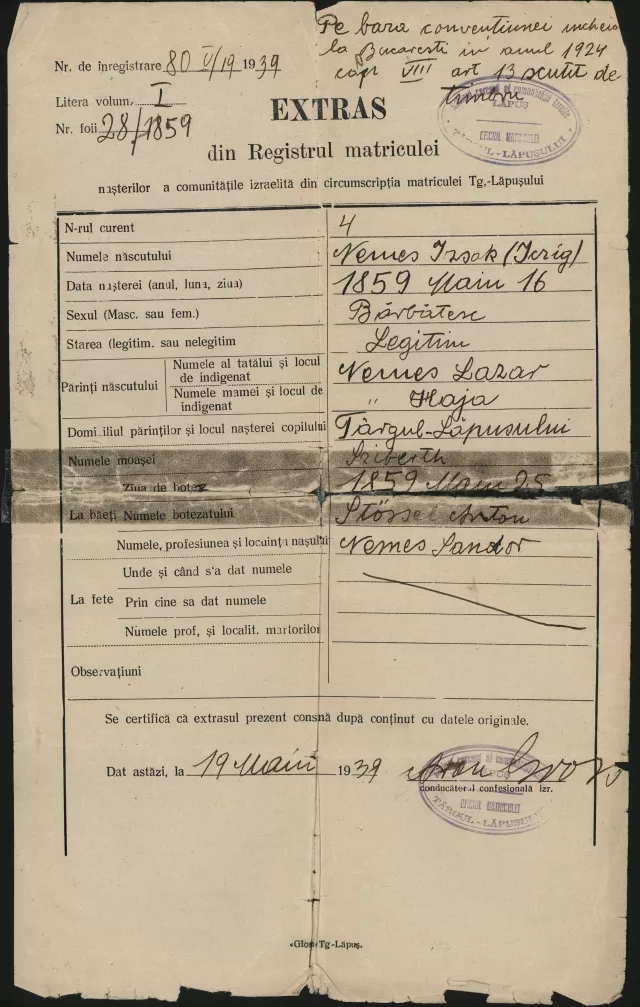 Pe baza convențiunei incheia
la Bucaresti in anul 1924
cap VIII art 13 scutit de
timbru
Nr. de înregistrare 80 V/19 1939
Litera volum. I
Nr. foii 28/1859
LĂPUȘ
OFICIUL MATRICULEI
TÂRGUL-LĂPUȘULUI
EXTRAS
din Registrul matriculei
nașterilor a comunităţile izraelită din circumscripţia matriculei Tg.-Lăpușului
N-rul curent 4
Numele născutului Nemes Izsak (Iczig)
Data nașterei (anul, luna, ziua) 1859 Maiu 16
Sexul (Masc. sau fem.) Bărbătesc
Starea (legitim. sau nelegitim Legitim
Părinţi născutului
Numele al tatălui și locul de indigenat Nemes Lazar
Numele mamei și locul de indigenat " Haja
Domiciliul părinţilor și locul nașterei copilului Târgul-Lăpusului
Numele moașei Sziberth
Ziua de botez 1859 Maiu 25
La băeţi Numele botezatului Stössel Anton
Numele, profesiunea și locuinţa nașului Nemes Sandor
La fete
Unde și când s'a dat numele
Prin cine sa dat numele
Numele prof, și localit. martorilor
Observaţiuni
Se certifică că extrasul prezent consnă după conţinut cu datele originale.
Dat astăzi, la 19 Maiu 1939
conducătorul confesională izr.
OFICIUL MATRICULEI
TÂRGUL-LĂPUȘULUI
«Glor» Tg-Lăpuș.